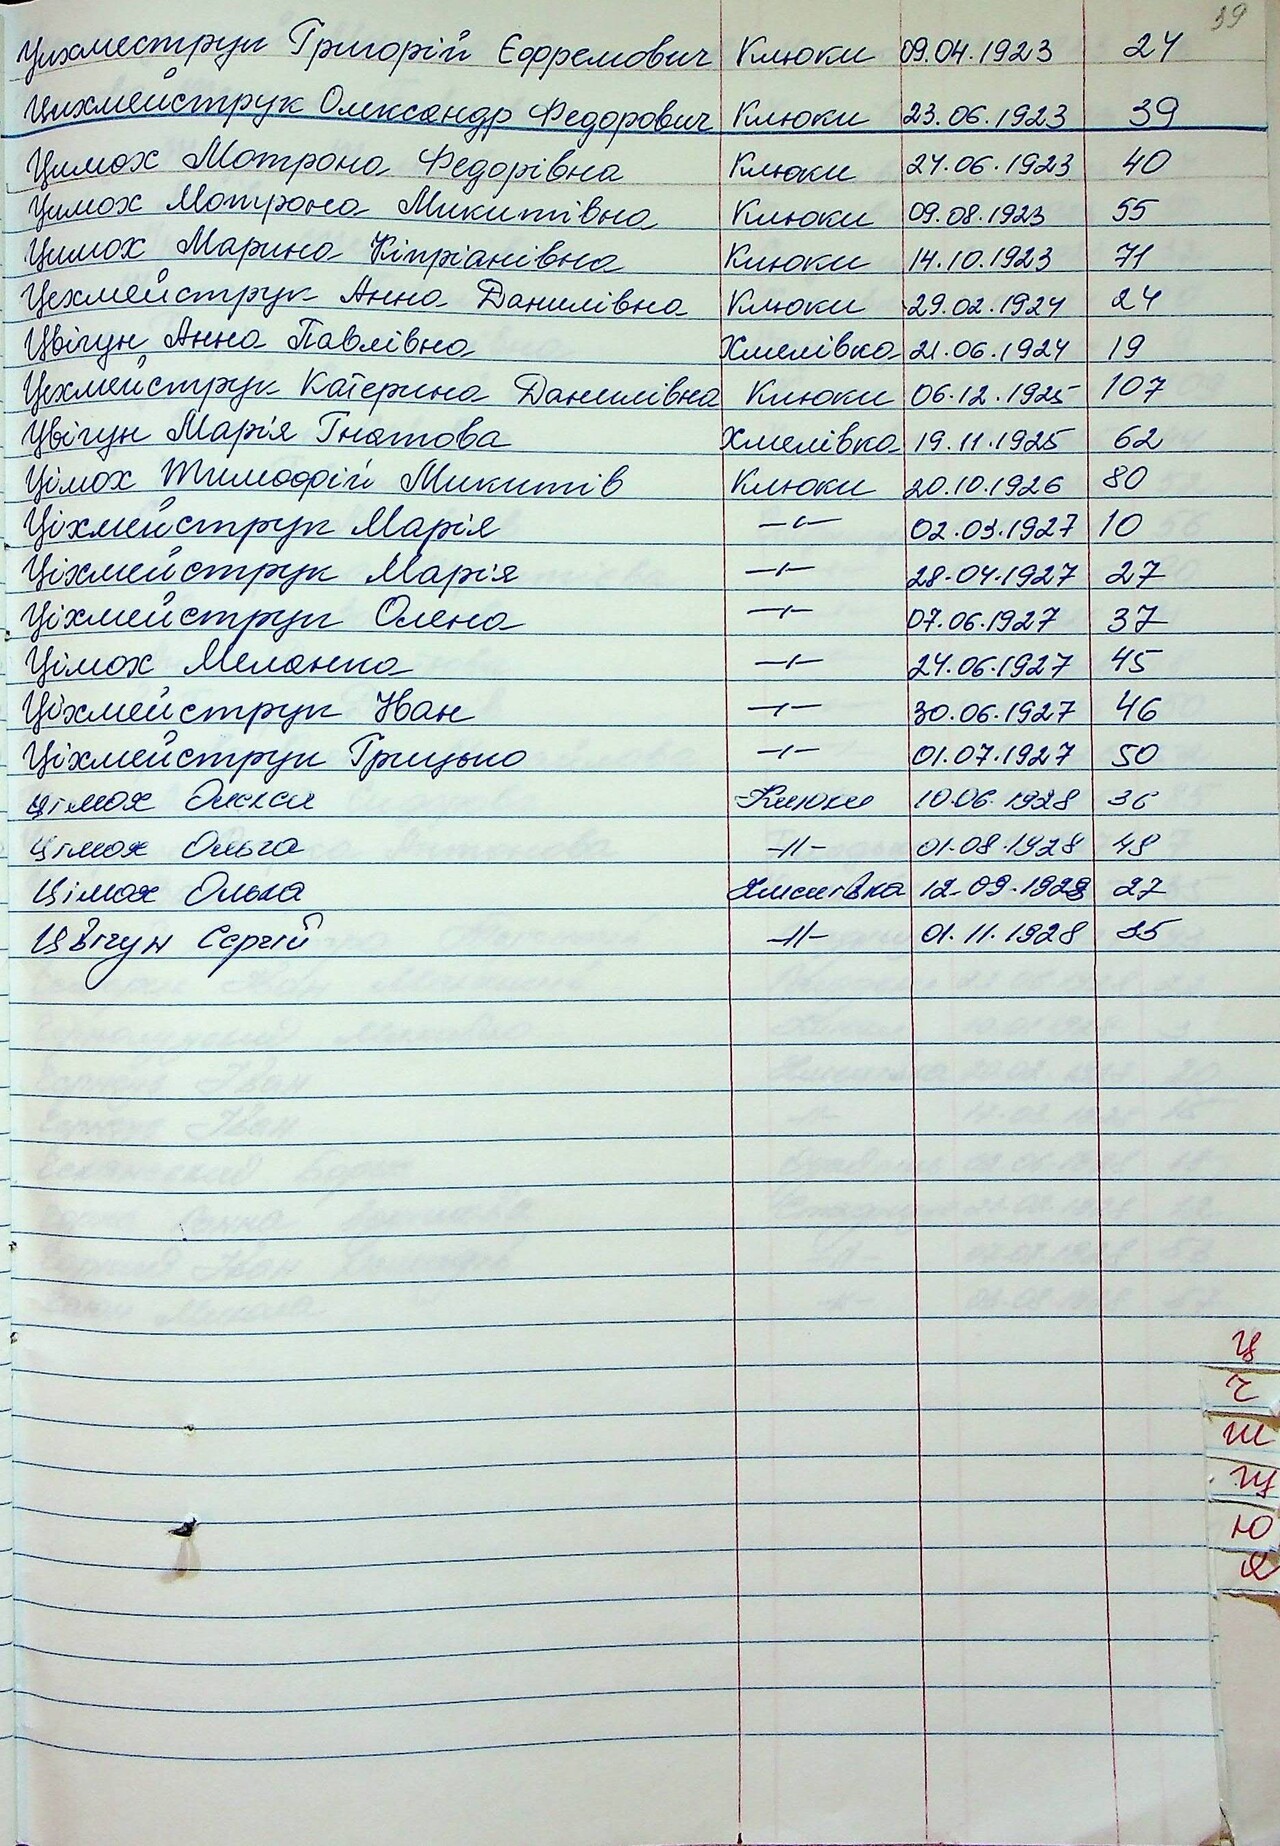 39
Цихместрук Григорій Єфремович Клюки 09.04.1923 24
Цихмейструк Олександр Федорович Клюки 23.06.1923 39
Цимох Мотрона Федорівна Клюки 24.06.1923 40
Цимох Мотрона Микитівна Клюки 09.08.1923 55
Цимох Марина Кіпріанівна Клюки 14.10.1923 71
Цехмейструк Анна Данилівна Клюки 29.02.1924 24
Цвігун Анна Павлівна Хмелівка 21.06.1924 19
Цехмейструк Катерина Данилівна Клюки 06.12.1925 107
Цвігун Марія Гнатова Хмелівка 19.11.1925 62
Цімох Тимофій Микитів Клюки 20.10.1926 80
Ціхмейструк Марія -//- 02.03.1927 10
Ціхмейструк Марія -//- 28.04.1927 27
Ціхмейструк Олена -//- 07.06.1927 37
Цімох Меланка -//- 24.06.1927 45
Ціхмейструк Іван -//- 30.06.1927 46
Ціхмейструк Грицько -//- 01.07.1927 50
Цімох Олекси Клюки 10.06.1928 36
Цімох Ольга -//- 01.08.1928 48
Цімох Ольха Хмелівка 12.09.1928 27
Цвігун Сергій -//- 01.11.1928 35
Ц
Ч
Ш
Щ
Ю
Я